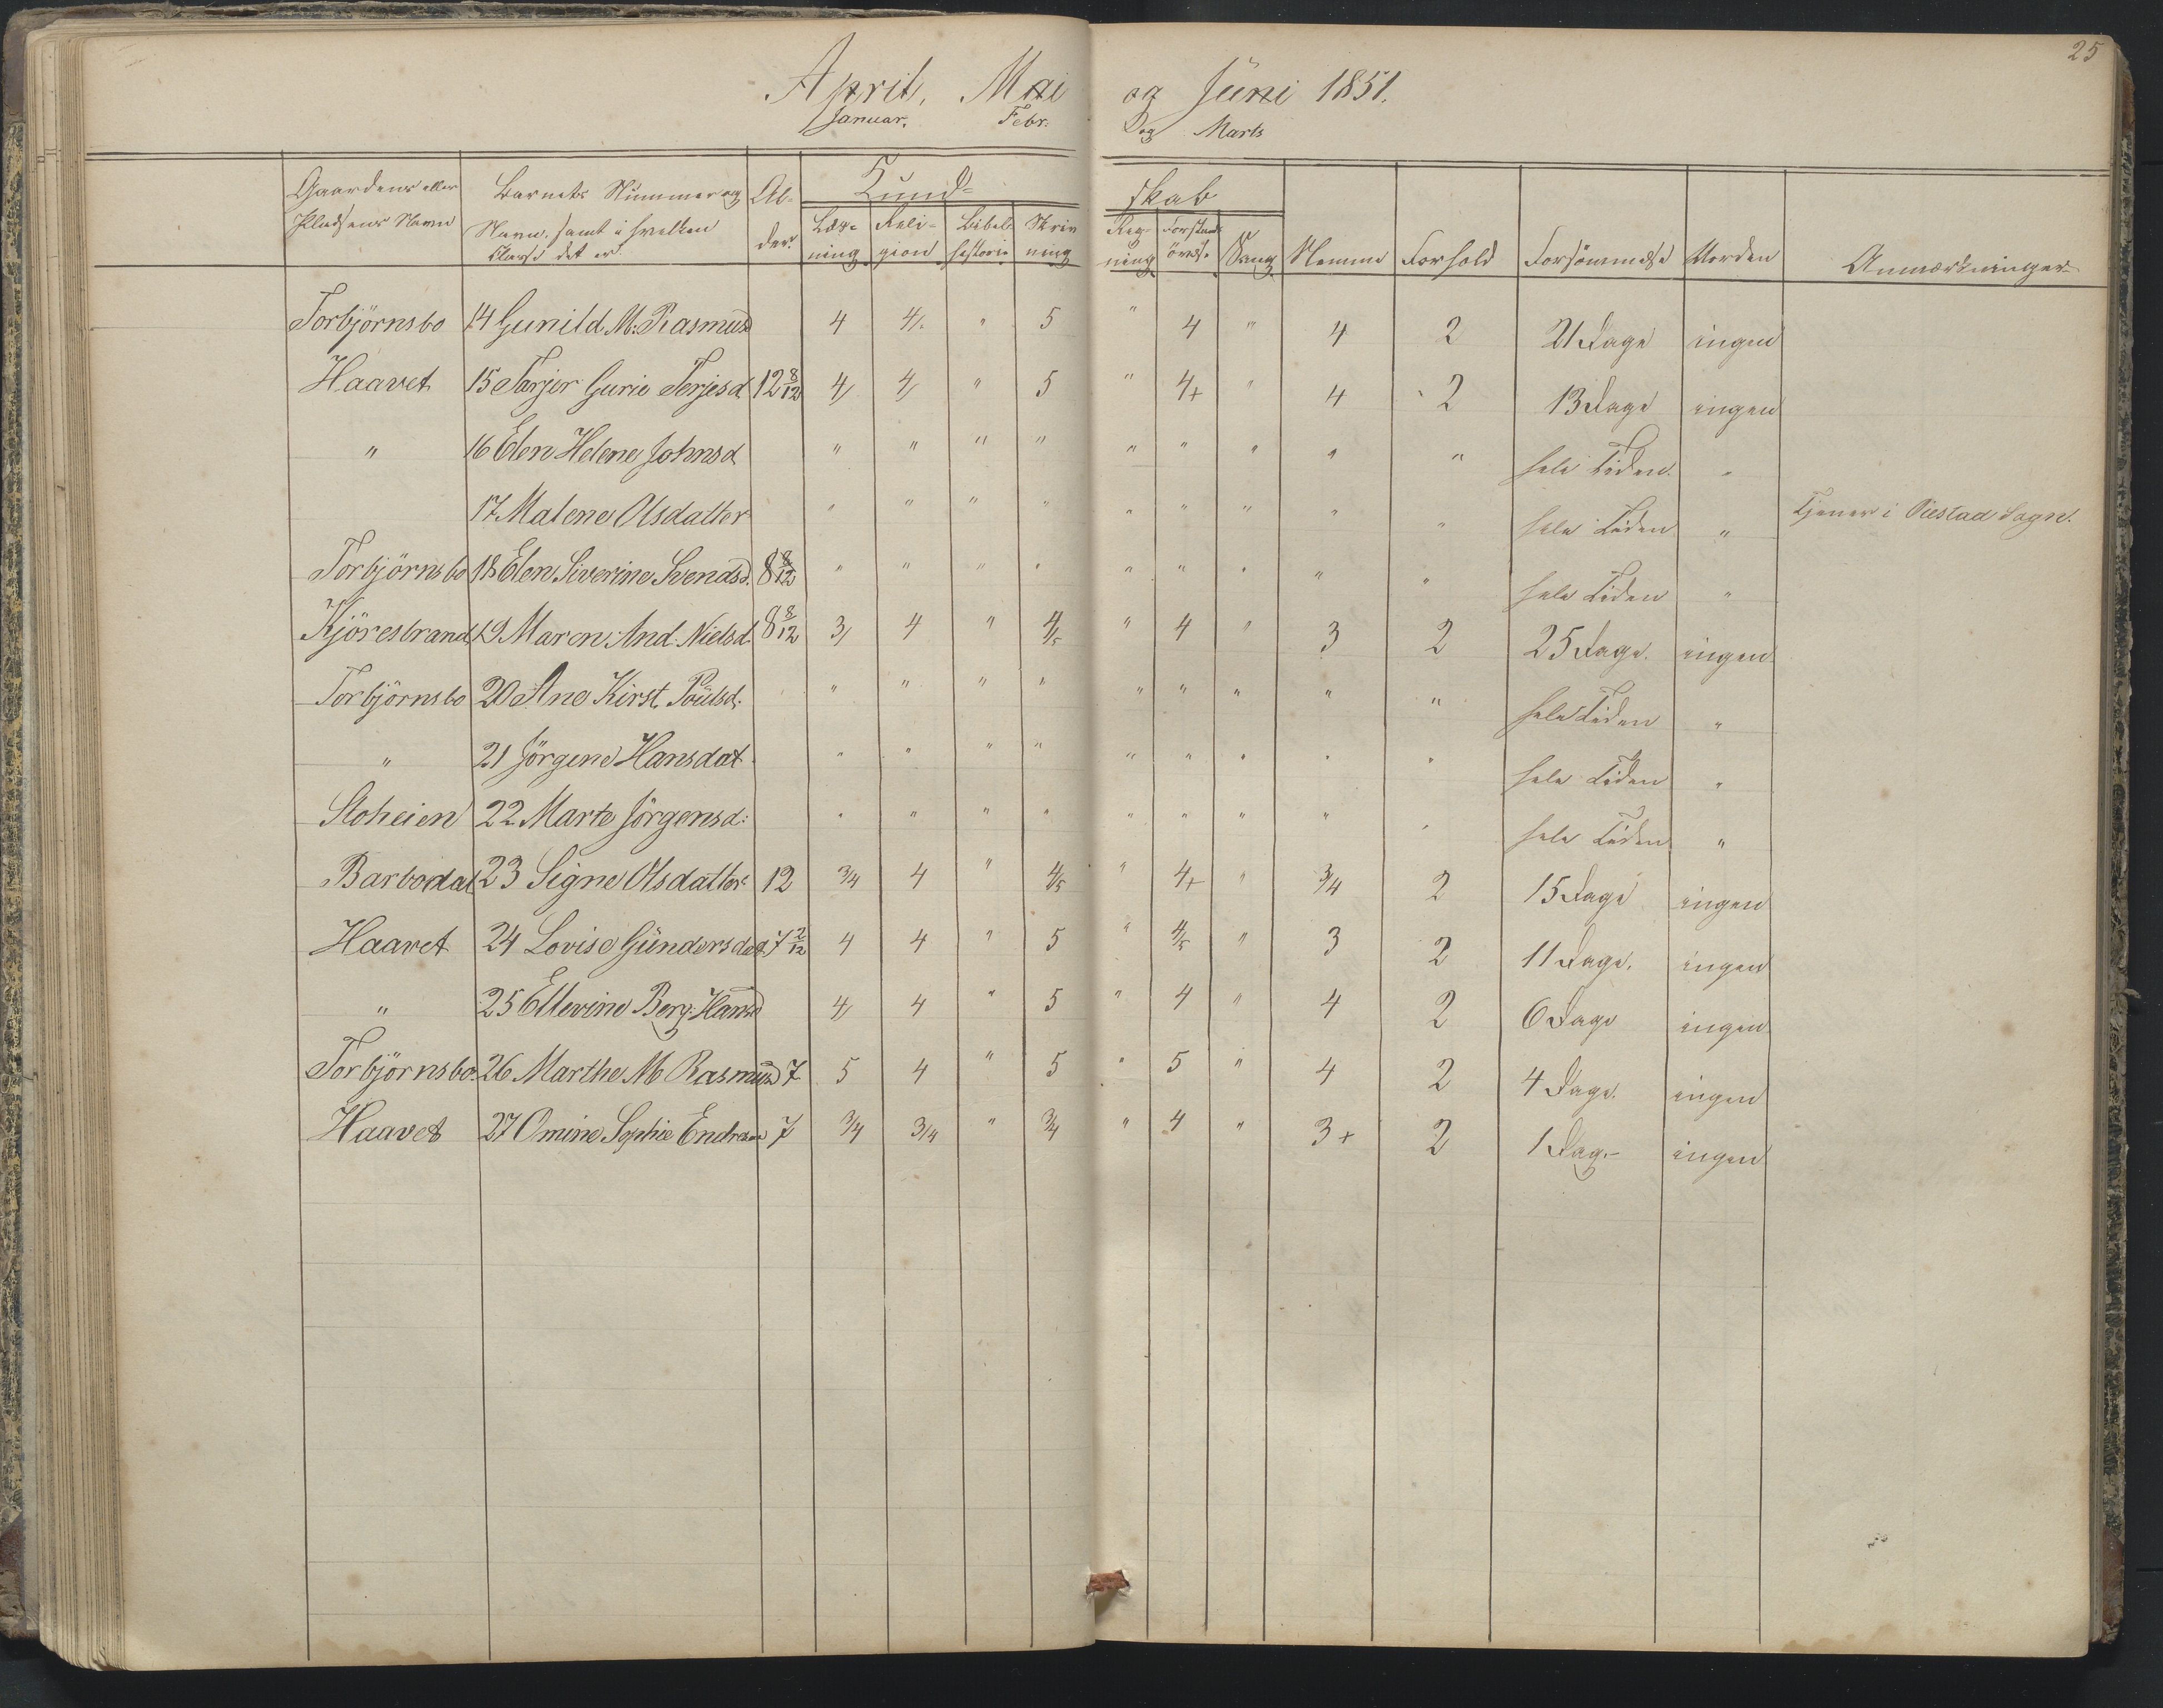 25
April, Mai og Juni 1851.
Januar, Febr. og Marts
Gaardens eller Pladsens Navn | Barnets Nummer og Navn, samt i hvilken Classe det er. | Al- der. | Kund- skab | Læs- ning | Reli- gion | Bibel- historie | Skriv ning | Reg- ning | Forstands övelse | Sang | Nemme | Forhold | Forsömmelse | Orden | Anmærkninger
Torbjörnsbo 14 Gunild M: Rasmusd 4 4. " 5 " 4 " 4 2 21 Dage ingen
Haavet 15 Terjer Gurie Terjesd 12 8/12 4/ 4/ " 5 " 4+ " 4 2 13 Dage ingen
" 16 Elen Helene Johnsd " " " " " " " " " hele Tiden. "
17 Malene Olsdatter " " " " " " " " " hele Tiden " Tjener i Öiestad Sogn.
Torbjörnsbo 18 Elen Siverine Svendsd. 8 8/12 " " " " " " " " " hele Tiden "
Kjöresbrand 19 Maren And. Nielsd. 8 8/12 3/ 4 " 4/5 " 4 " 3 2 25 Dage. ingen
Torbjörnsbo 20 Ane Kirst. Poülsd. " " " " " " " " " hele Tiden "
" 21 Jörgene Hansdat " " " " " " " " " hele Tiden "
Stoheien 22 Marte Jörgensd: " " " " " " " " " hele Tiden "
Barbodal 23 Signe Olsdatter 12 3/4 4 " 4/5 " 4+ " 3/4 2 15 Dage ingen
Haavet 24 Lovise Gündersdat. 7 2/12 4 4 " 5 " 4/5 " 3 2 11 Dage. ingen
" 25 Ellevine Berg. Hansd 4/ 4 " 5 " 4 " 4 2 6 Dage ingen
Torbjörnsbo 26 Marthe M Rasmusd 7 5 4 " 5 " 5 " 4 2 4 Dage. ingen
Haavet 27 Omine Sophie 7 3/4 3/4 " 3/4 " 4 " 3+ 2 1 Dag.- ingen